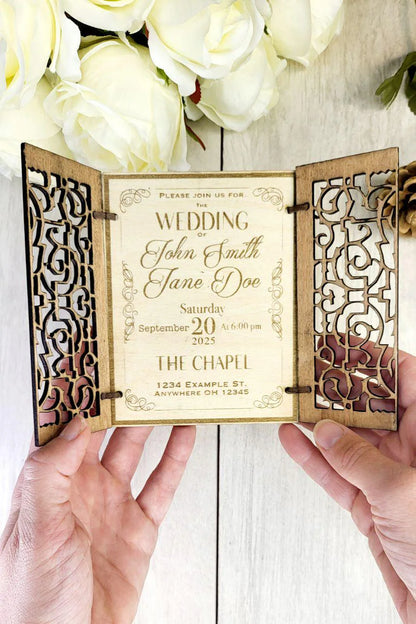 Please join us for
the
WEDDING
of
John Smith
Jane Doe
Saturday
September 20 At 6:00 pm
/ 2025
THE CHAPEL
1234 Example St.
Anywhere OH 12345